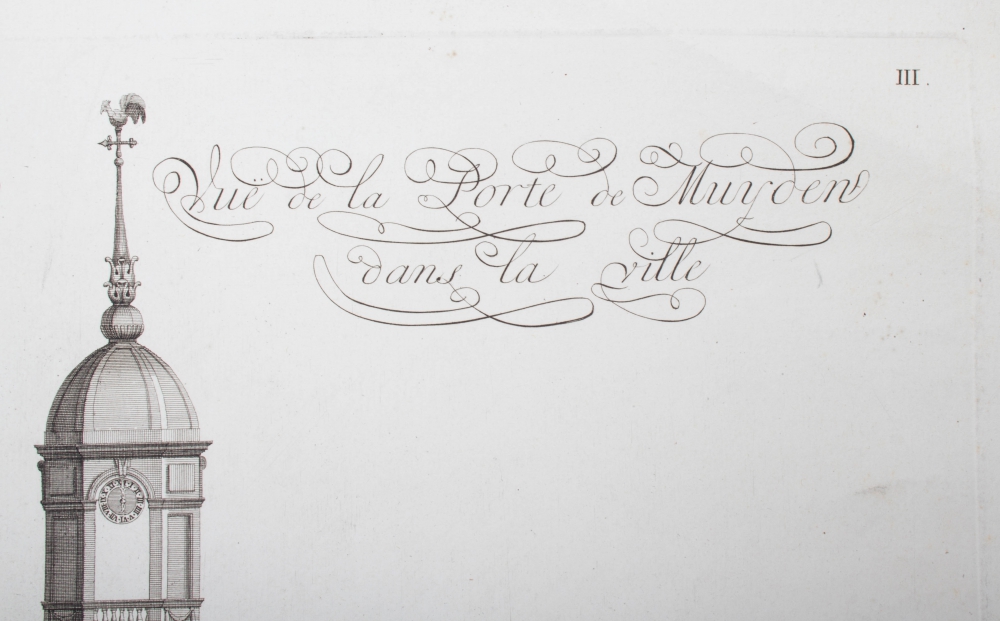 III.
Vuë de la Porte de Muyden
dans la ville